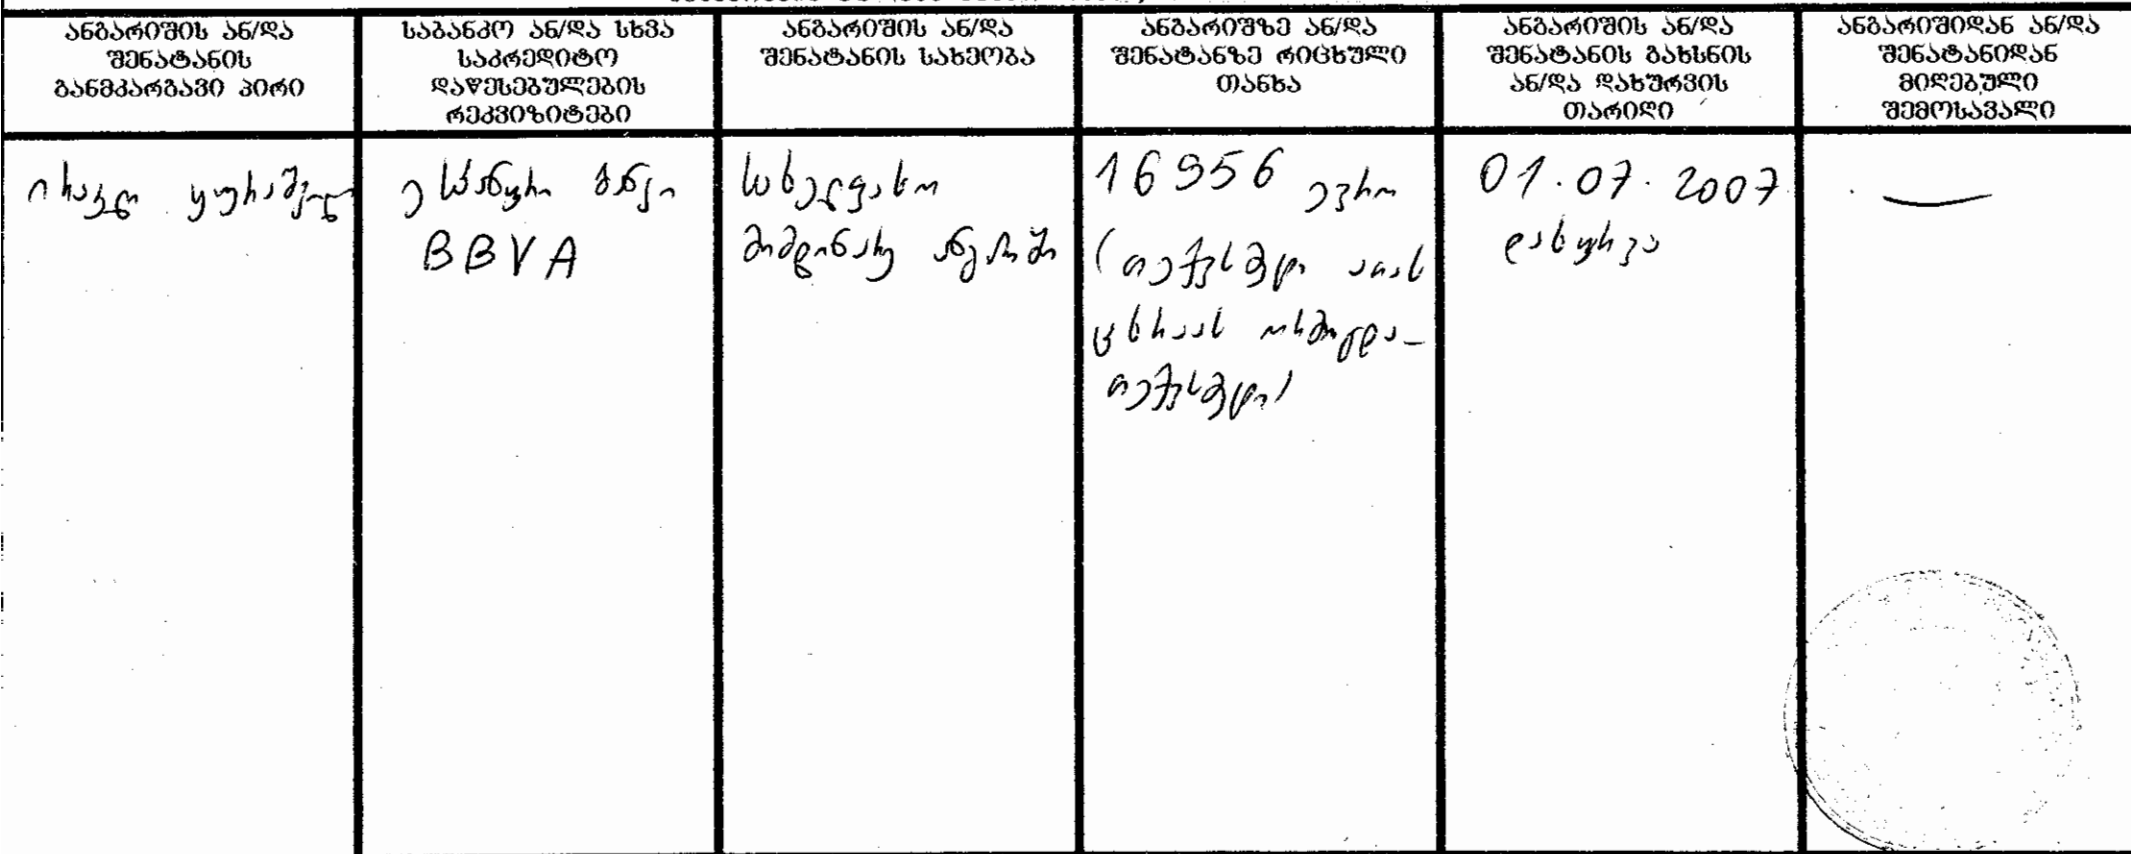 ანგარიშის ან/და
შენატანის
განმკარგავი პირი
საბანკო ან/და სხვა
საკრედიტო
დაწესებულების
რეკვიზიტები
ანგარიშის ან/და
შენატანის სახეობა
ანგარიშზე ან/და
შენატანზე რიცხული
თანხა
ანგარიშის ან/და
შენატანის გახსნის
ან/და დახურვის
თარიღი
ანგარიშიდან ან/და
შენატანიდან
მიღებული
შემოსავალი
ესპანური ბანკი
BBVA
სახელფასო
მიმდინარე ანგარიში
16956 ევრო
(თექვსმეტი ათას
ცხრაას ორმოცდა-
თექვსმეტი)
01.07.2007
დახურვა
—